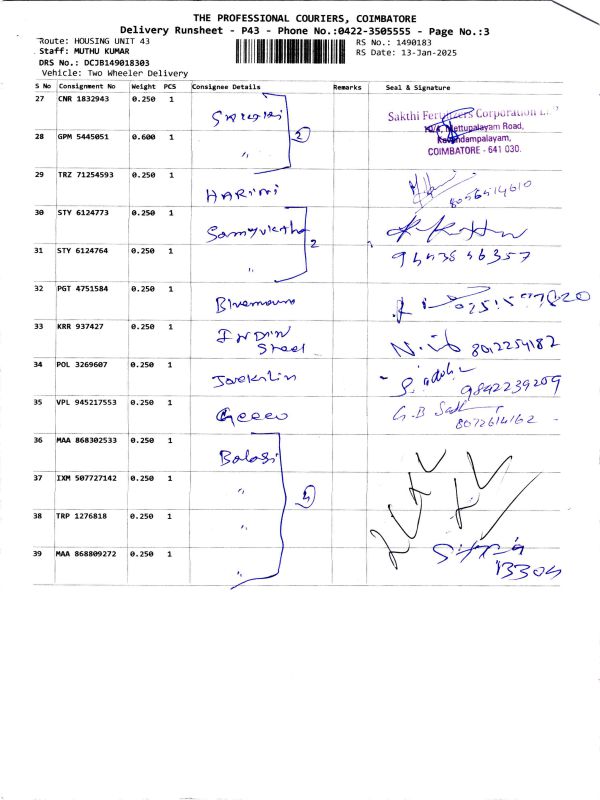 THE PROFESSIONAL COURIERS, COIMBATORE
Delivery Runsheet - P43 - Phone No.:0422-3505555 - Page No.:3
Route: HOUSING UNIT 43
RS No.: 1490183
Staff: MUTHU KUMAR
RS Date: 13-Jan-2025
DRS No.: DCJB149018303
Vehicle: Two Wheeler Delivery
S No Consignment No Weight PCS Consignee Details Remarks Seal & Signature
27 CNR 1832943 0.250 1
Sakthi Fertilizers Corporation
10/4, Mettupalayam Road,
Kavundampalayam,
COIMBATORE - 641 030.
28 GPM 5445051 0.600 1 " 2
29 TRZ 71254593 0.250 1 HARINI
30 STY 6124773 0.250 1 Samyuktha 2
31 STY 6124764 0.250 1 "
32 PGT 4751584 0.250 1
33 KRR 937427 0.250 1 INDIN Steel 8012254182
34 POL 3269607 0.250 1 9842239209
35 VPL 945217553 0.250 1 G.B 8072614162
36 MAA 868302533 0.250 1 Balaji
37 IXM 507727142 0.250 1 "
38 TRP 1276818 0.250 1 "
39 MAA 868809272 0.250 1 "